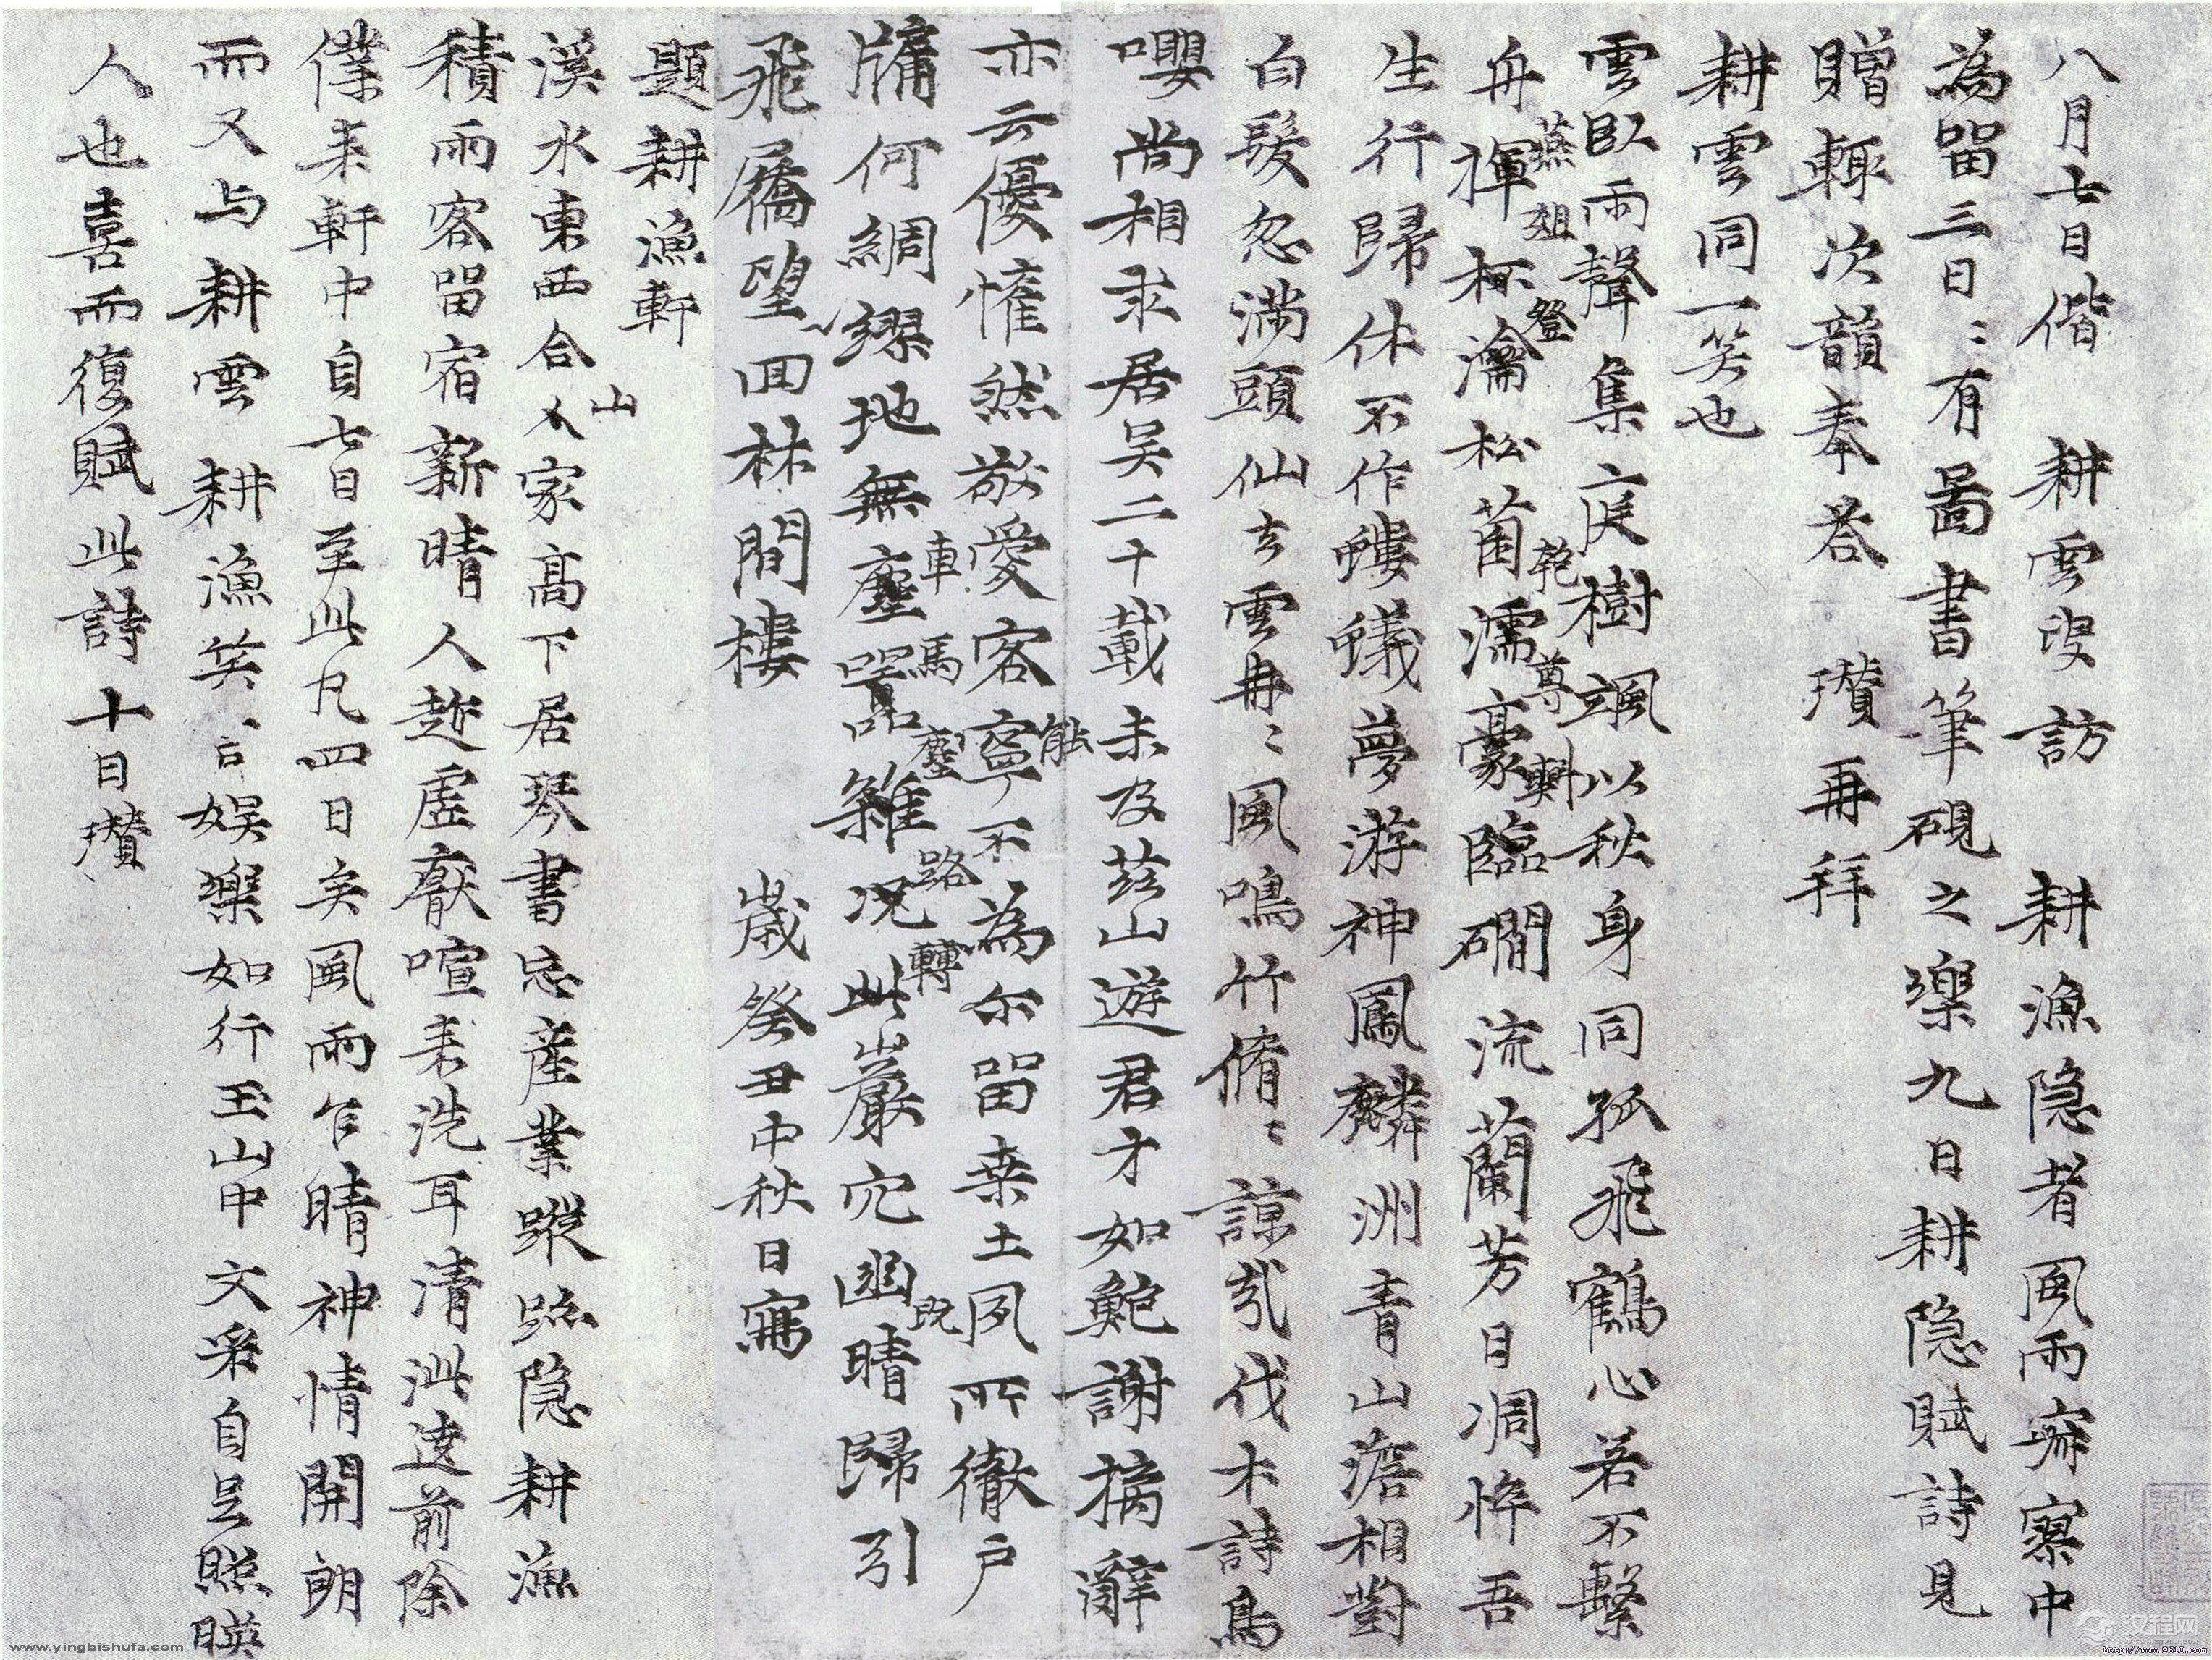 八月七日偕 耕雲叟訪 耕漁隐者風雨寂寥中
為留三日〻有圖書筆硯之樂九日耕隐賦詩見
贈輒次韻奉荅 瓚再拜
耕雲同一笑也
雲臥雨聲集庭樹颯以秋身同孤飛鶴心若不繫
舟揮杯瀹松菌濡豪臨磵流蘭芳日凋悴吾
燕俎登 乾 尊 斞
生行歸休不作螻蟻夢游神鳳麟洲青山澹相對
白髮忽满頭仙去雲冉〻風鳴竹脩〻諒哉伐木詩鳥
嚶尚相求居吴二十載未及兹山遊君才如鮑謝摛辭
亦云優惟然敬愛客寧不為尓留桒土夙所徹戶
能
牖何綢繆地無塵噐雜况此巖穴幽晴歸引
車馬塵路轉 既
飛屩望〻回林間樓 歲癸丑中秋日寫
題耕漁軒
溪水東西合人家高下居琴書忘產業蹤跡隐耕漁
山
積雨客留宿新晴人趂虛厭喧来洗耳清泚遶前除
僕来軒中自七日至此凡四日矣風雨乍晴神情開朗
而又与耕雲 耕漁笑言娱樂如行玉山中文采自足照暎
人也喜而復賦此詩十日瓚
www.yingbishufa.com
汉程网
http://www.9610.com